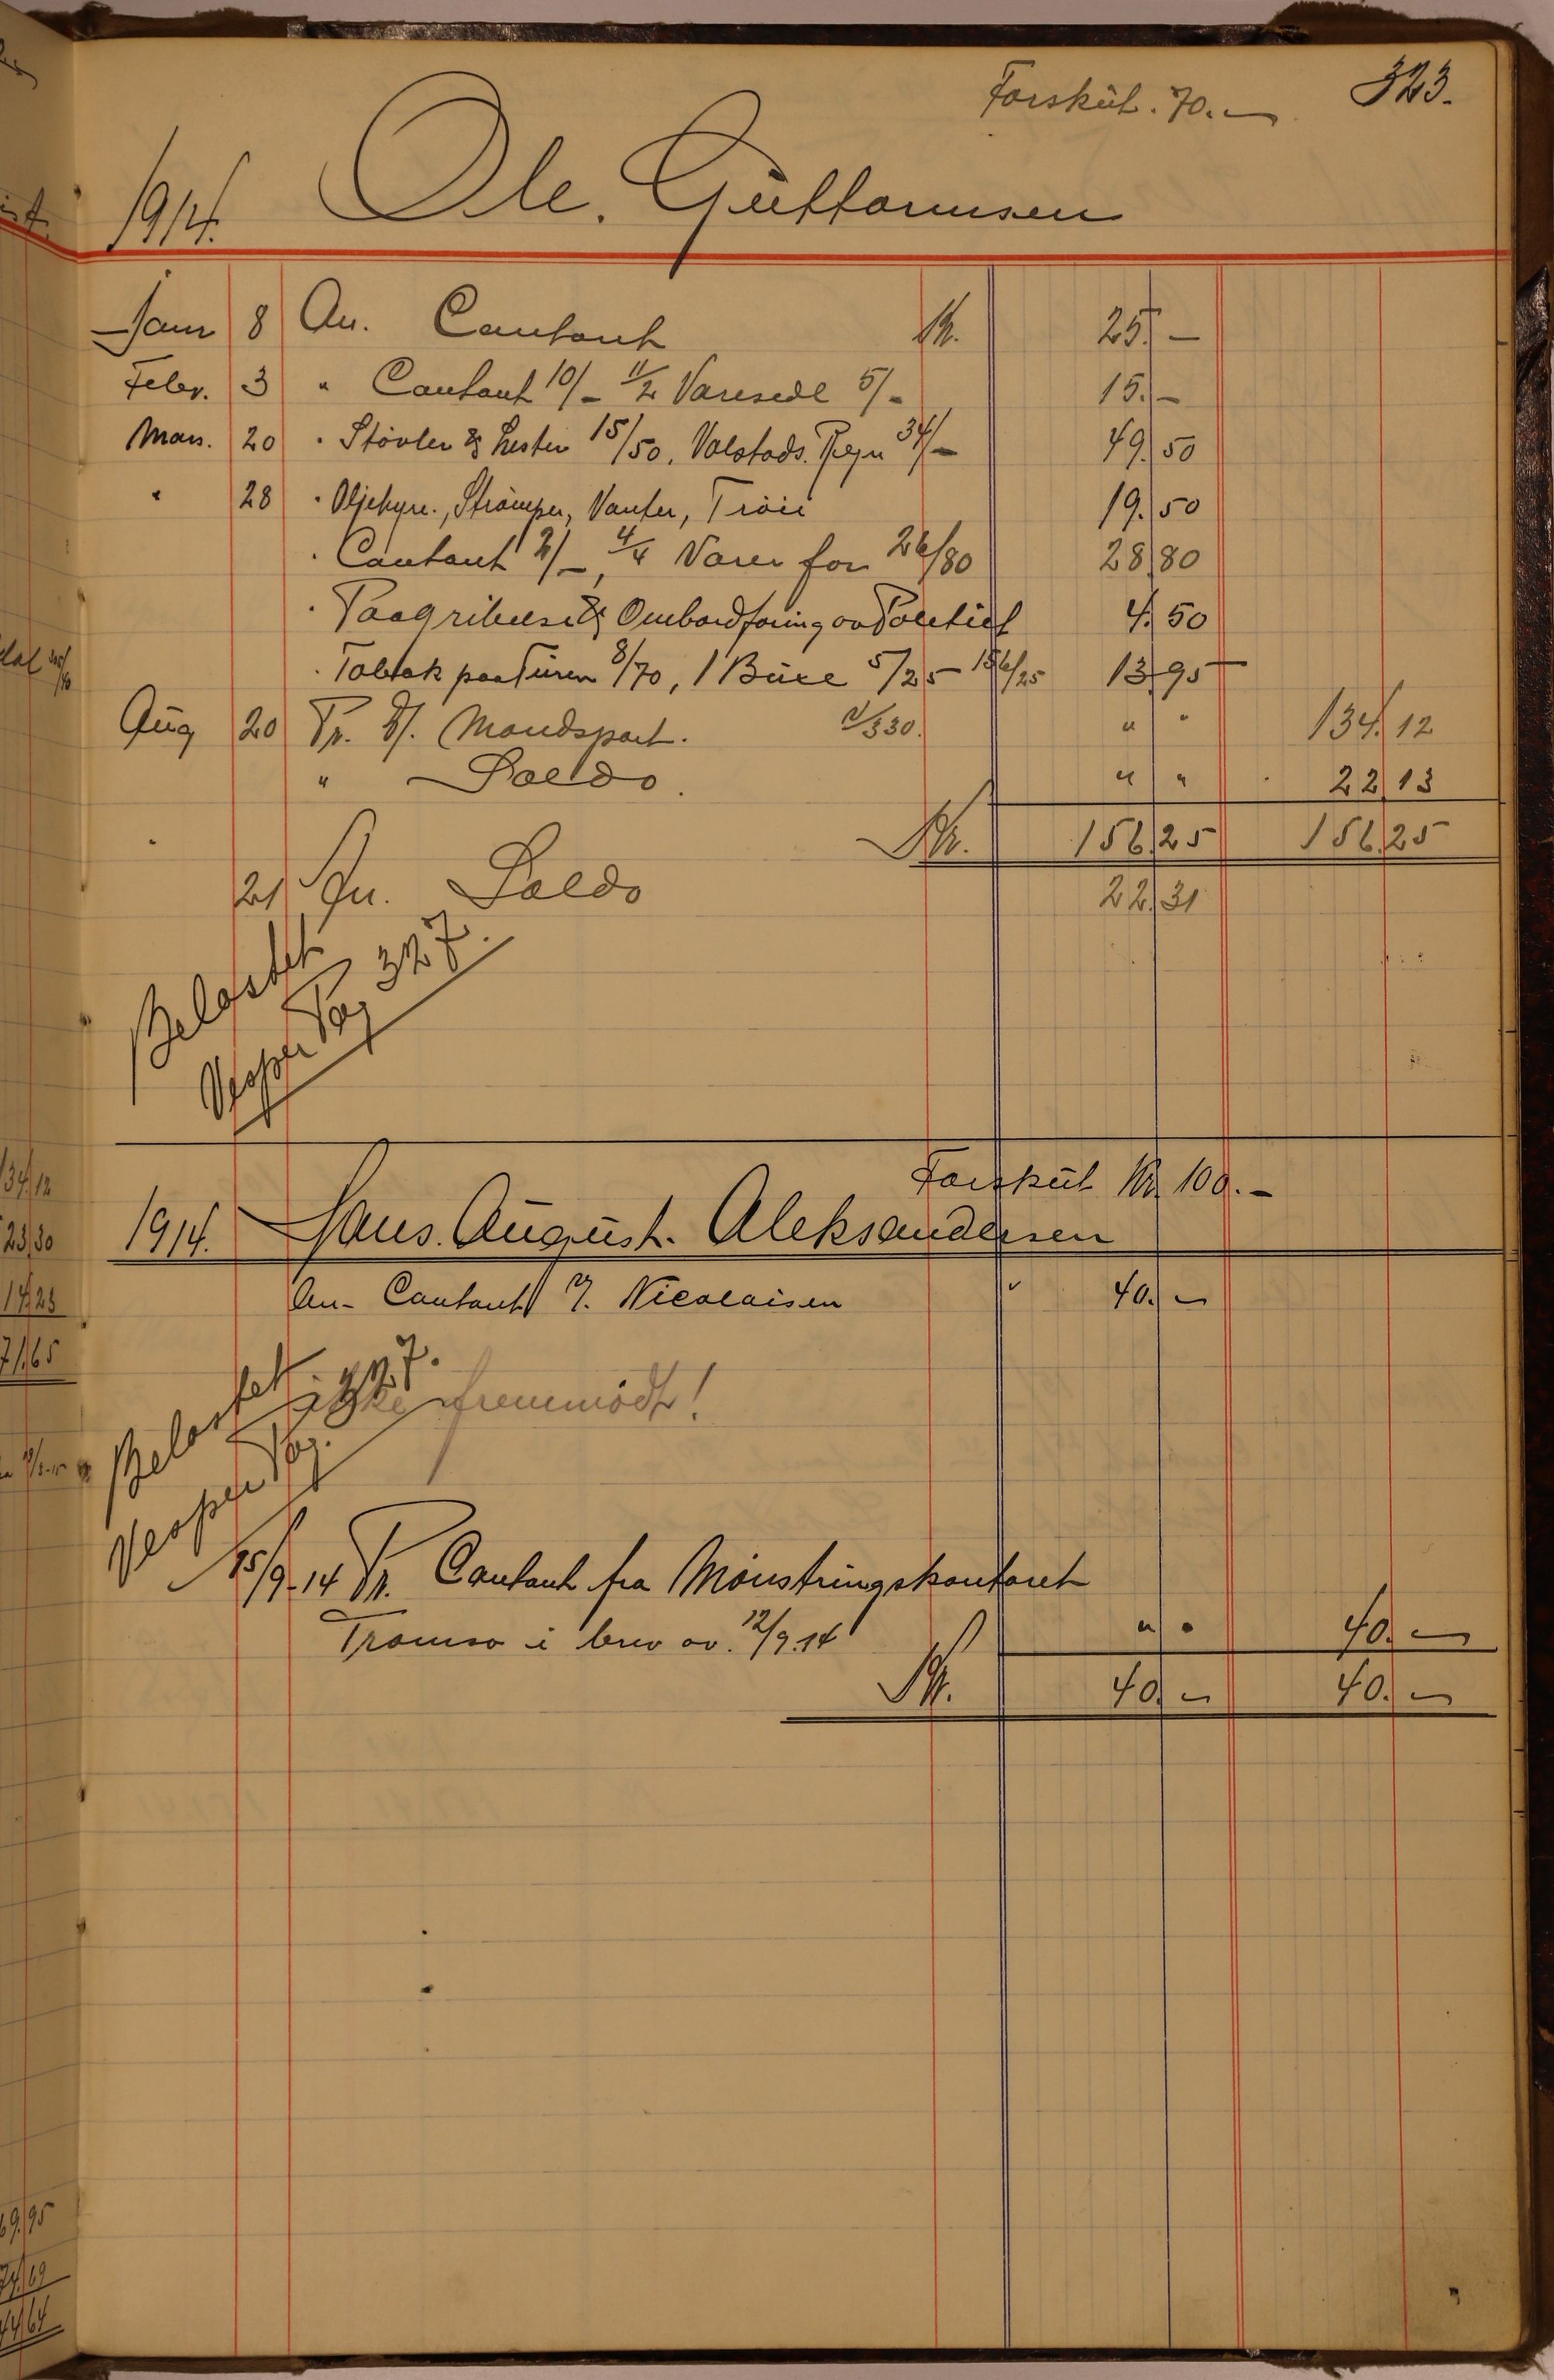 Forsküt. 70.— 323.
1914. Ole. Güttormsen
Janr 8 An. Contant Kr. 25.—
Febr. 3 " Contant 10/- 11/2 Varesedl 5/- 15.—
Mars. 20 " Støvler & Lester 15/50. Valstads. Regn 34/- 49.50
" 28 " Oljehyre., Strømper, Vanter, Trøie 19.50
" Contant 2/-, 4/4 Varer for 26/80 28.80
" Paagribelse & Ombordføring av Politiet 4.50
" Tobak paa Türen 8/70, 1 Büxe 5/25 156/25 13.95
Aüg 20 Pr. D/. Mandspart. 330. " " 134.12
" Saldo. " " 22.13
Kr. 156.25 156.25
21 An. Saldo 22.31
Belastet
Vesper Pag 327.
Forsküt Kr. 100.-
1914. Hans. Aügust. Aleksandersen
An- Contant Nicolaisen " 40.—
ikke fremmødt!
Belastet
Vesper Pag. 327.
15/9-14 Pr. Contant fra Mønstringskontoret
Tromsø i brev av. 12/9.14 " " 40.—
Kr. 40.— 40.—
134.12
23.30
14.23
71.65
69.95
74.69
44.64